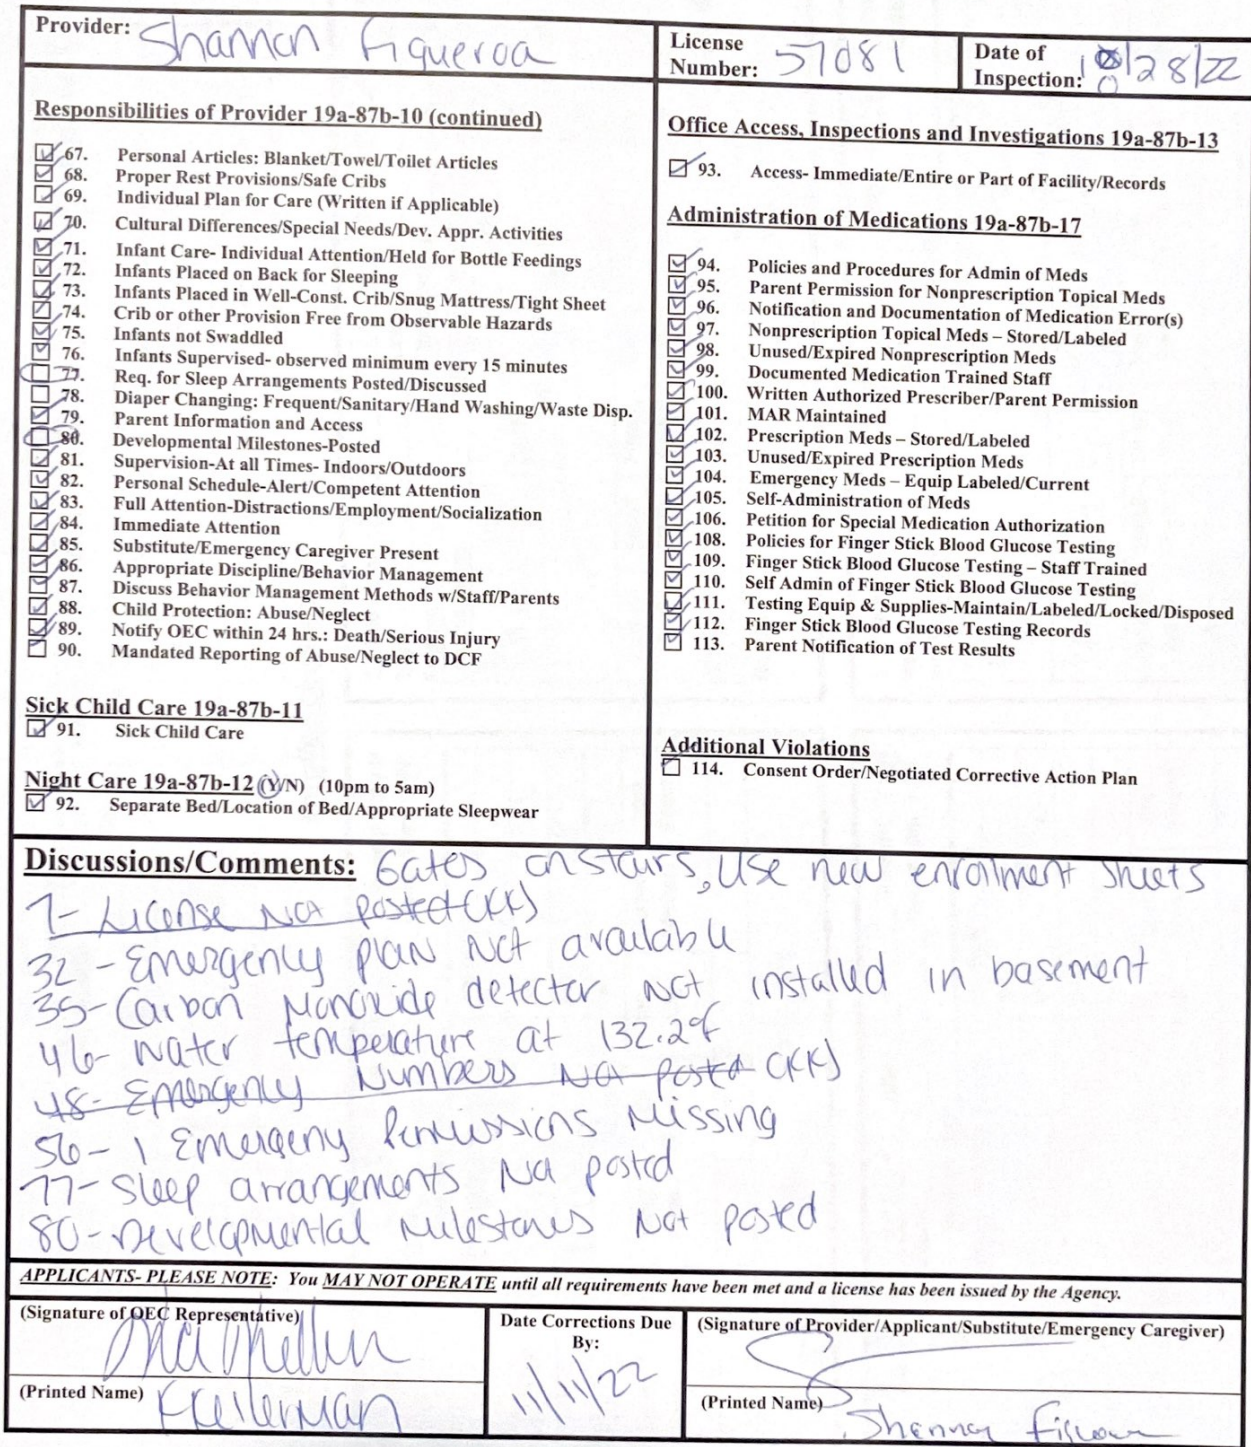 Provider: Shannon Figueroa
License Number: 57081
Date of Inspection: 10/28/22
Responsibilities of Provider 19a-87b-10 (continued)
67. Personal Articles: Blanket/Towel/Toilet Articles
68. Proper Rest Provisions/Safe Cribs
69. Individual Plan for Care (Written if Applicable)
70. Cultural Differences/Special Needs/Dev. Appr. Activities
71. Infant Care- Individual Attention/Held for Bottle Feedings
72. Infants Placed on Back for Sleeping
73. Infants Placed in Well-Const. Crib/Snug Mattress/Tight Sheet
74. Crib or other Provision Free from Observable Hazards
75. Infants not Swaddled
76. Infants Supervised- observed minimum every 15 minutes
77. Req. for Sleep Arrangements Posted/Discussed
78. Diaper Changing: Frequent/Sanitary/Hand Washing/Waste Disp.
79. Parent Information and Access
80. Developmental Milestones-Posted
81. Supervision-At all Times- Indoors/Outdoors
82. Personal Schedule-Alert/Competent Attention
83. Full Attention-Distractions/Employment/Socialization
84. Immediate Attention
85. Substitute/Emergency Caregiver Present
86. Appropriate Discipline/Behavior Management
87. Discuss Behavior Management Methods w/Staff/Parents
88. Child Protection: Abuse/Neglect
89. Notify OEC within 24 hrs.: Death/Serious Injury
90. Mandated Reporting of Abuse/Neglect to DCF
Sick Child Care 19a-87b-11
91. Sick Child Care
Night Care 19a-87b-12 (Y/N) (10pm to 5am)
92. Separate Bed/Location of Bed/Appropriate Sleepwear
Office Access, Inspections and Investigations 19a-87b-13
93. Access- Immediate/Entire or Part of Facility/Records
Administration of Medications 19a-87b-17
94. Policies and Procedures for Admin of Meds
95. Parent Permission for Nonprescription Topical Meds
96. Notification and Documentation of Medication Error(s)
97. Nonprescription Topical Meds – Stored/Labeled
98. Unused/Expired Nonprescription Meds
99. Documented Medication Trained Staff
100. Written Authorized Prescriber/Parent Permission
101. MAR Maintained
102. Prescription Meds – Stored/Labeled
103. Unused/Expired Prescription Meds
104. Emergency Meds – Equip Labeled/Current
105. Self-Administration of Meds
106. Petition for Special Medication Authorization
108. Policies for Finger Stick Blood Glucose Testing
109. Finger Stick Blood Glucose Testing – Staff Trained
110. Self Admin of Finger Stick Blood Glucose Testing
111. Testing Equip & Supplies-Maintain/Labeled/Locked/Disposed
112. Finger Stick Blood Glucose Testing Records
113. Parent Notification of Test Results
Additional Violations
114. Consent Order/Negotiated Corrective Action Plan
Discussions/Comments: Gates on stairs, Use new enrollment sheets
7- License Not posted (KK)
32 - Emergency plan Not available
35- Carbon Monoxide detector not installed in basement
46- Water temperature at 132.2°F
48- Emergency Numbers Not posted (KK)
56- 1 Emergeny Permissions Missing
77- Sleep arrangements Not posted
80- Developmental Milestones Not posted
APPLICANTS- PLEASE NOTE: You MAY NOT OPERATE until all requirements have been met and a license has been issued by the Agency.
(Signature of OEC Representative)
(Printed Name) K Kellerman
Date Corrections Due By:
11/11/22
(Signature of Provider/Applicant/Substitute/Emergency Caregiver)
(Printed Name) Shannon